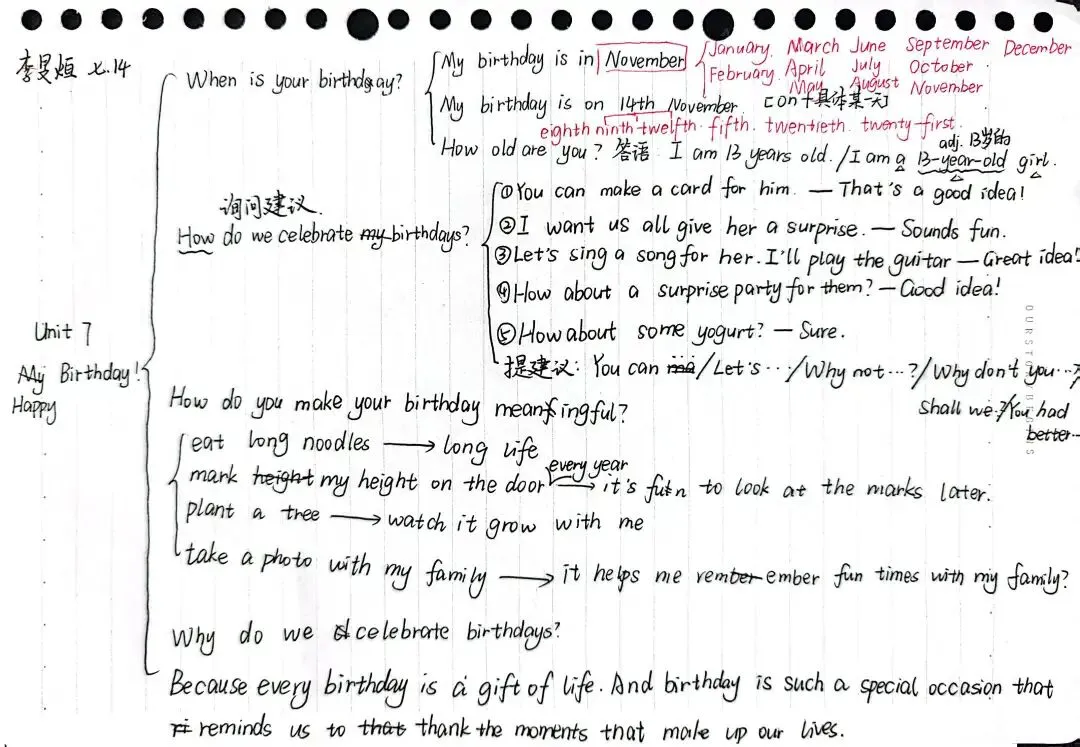 李旻烜 七.14
When is your birthday?
My birthday is in November
January March June September December
February April July October
May August November
My birthday is on 14th November [on+具体某一天]
eighth ninth twelfth fifth twentieth twenty-first
adj. 13岁的
How old are you? 答语: I am 13 years old. / I am a 13-year-old girl.
询问建议.
How do we celebrate my birthdays?
①You can make a card for him. — That's a good idea!
②I want us all give her a surprise. — Sounds fun.
③Let's sing a song for her. I'll play the guitar — Great idea!
④How about a surprise party for them? — Good idea!
⑤How about some yogurt? — Sure.
提建议: You can / Let's ... / Why not ...? / Why don't you ...?/
Shall we..?/You had
better...
Unit 7
My Birthday!
Happy
How do you make your birthday meaningful?
eat long noodles → long life
every year
mark height my height on the door → it's fun to look at the marks later.
plant a tree → watch it grow with me
take a photo with my family → it helps me remember fun times with my family?
Why do we celebrate birthdays?
Because every birthday is a gift of life. And birthday is such a special occasion that
reminds us to that thank the moments that make up our lives.